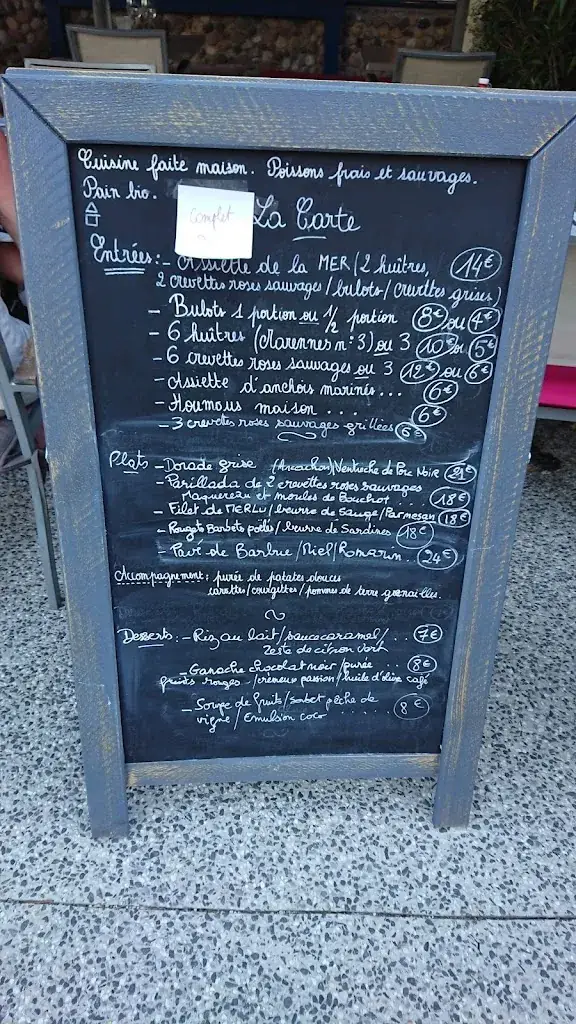 Cuisine faite maison. Poissons frais et sauvages.
Pain bio.
Complet
La Carte
Entrées : - Assiette de la MER / 2 huîtres, 14€
2 crevettes roses sauvages / bulots / crevettes grises)
- Bulots 1 portion ou 1/2 portion 8€ ou 4€
- 6 huîtres (Marennes n°3) ou 3 10€ ou 5€
- 6 crevettes roses sauvages ou 3 12€ ou 6€
- Assiette d'anchois marinés... 6€
- Houmous maison .... 6€
- 3 crevettes roses sauvages grillées 6€
Plats - Dorade grise (Arcachon) Ventrèche de Porc Noir 21€
- Parillada de 2 crevettes roses sauvages
Maquereau et moules de Bouchot. 18€
- Filet de MERLU / beurre de Sauge / Parmesan 18€
- Rougets Barbets poêlés / beurre de Sardines 18€
- Pavé de Barbue / Miel / Romarin .. 24€
Accompagnement : purée de patates douces
carottes / courgettes / pommes de terre grenailles.
Desserts : - Riz au lait / sauce caramel / ... 7€
zeste de citron vert
- Ganache chocolat noir / purée .. 8€
fruits rouges / crémeux passion / huile d'olive café
- Soupe de fruits / sorbet pêche de
vigne / Emulsion coco ...... 8€